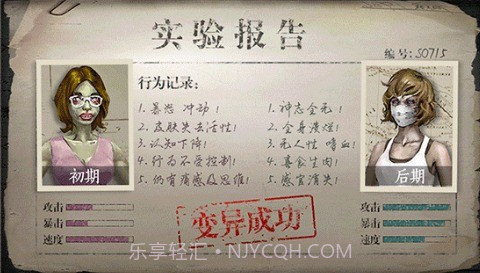 实验报告
编号:S0715
行为记录:
1.暴怒 冲动!
2.皮肤失去活性!
3.认知下降!
4.行为不受控制!
5.仍有痛感及思维!
1.神志全无!
2.全身溃烂!
3.无人性 嗜血!
4.喜食生肉!
5.感官消失!
初期
后期
攻击
暴击
速度
变异成功
攻击
暴击
速度
乐享轻汇·NJYCQH.COM